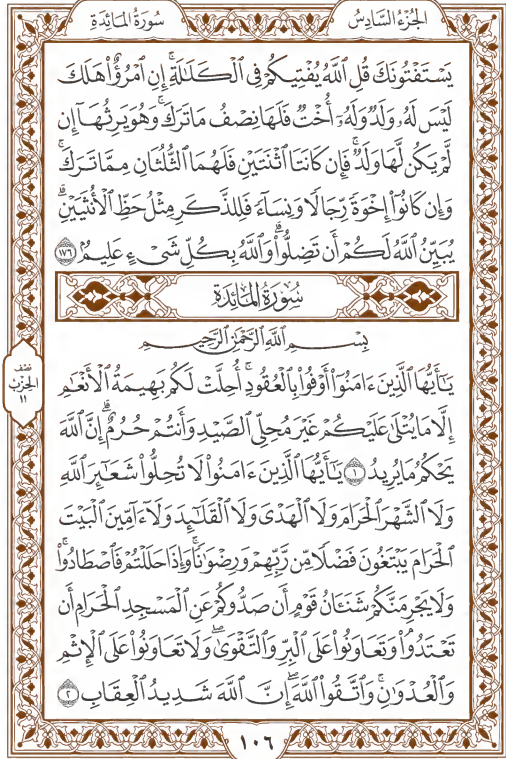 الجزء السادس
سورة المائدة
يَسْتَفْتُونَكَ قُلِ ٱللَّهُ يُفْتِيكُمْ فِى ٱلْكَلَٰلَةِ ۚ إِنِ ٱمْرُؤٌا۟ هَلَكَ
لَيْسَ لَهُۥ وَلَدٌ وَلَهُۥٓ أُخْتٌ فَلَهَا نِصْفُ مَا تَرَكَ ۚ وَهُوَ يَرِثُهَآ إِن
لَّمْ يَكُن لَّهَا وَلَدٌ ۚ فَإِن كَانَتَا ٱثْنَتَيْنِ فَلَهُمَا ٱلثُّلُثَانِ مِمَّا تَرَكَ ۚ
وَإِن كَانُوٓا۟ إِخْوَةً رِّجَالًا وَنِسَآءً فَلِلذَّكَرِ مِثْلُ حَظِّ ٱلْأُنثَيَيْنِ ۗ
يُبَيِّنُ ٱللَّهُ لَكُمْ أَن تَضِلُّوا۟ ۗ وَٱللَّهُ بِكُلِّ شَىْءٍ عَلِيمٌۢ ١٧٦
سورة المائدة
بِسْمِ ٱللَّهِ ٱلرَّحْمَٰنِ ٱلرَّحِيمِ
يَٰٓأَيُّهَا ٱلَّذِينَ ءَامَنُوٓا۟ أَوْفُوا۟ بِٱلْعُقُودِ ۚ أُحِلَّتْ لَكُم بَهِيمَةُ ٱلْأَنْعَٰمِ
إِلَّا مَا يُتْلَىٰ عَلَيْكُمْ غَيْرَ مُحِلِّى ٱلصَّيْدِ وَأَنتُمْ حُرُمٌ ۗ إِنَّ ٱللَّهَ
يَحْكُمُ مَا يُرِيدُ ١ يَٰٓأَيُّهَا ٱلَّذِينَ ءَامَنُوا۟ لَا تُحِلُّوا۟ شَعَٰٓئِرَ ٱللَّهِ
وَلَا ٱلشَّهْرَ ٱلْحَرَامَ وَلَا ٱلْهَدْىَ وَلَا ٱلْقَلَٰٓئِدَ وَلَآ ءَآمِّينَ ٱلْبَيْتَ
ٱلْحَرَامَ يَبْتَغُونَ فَضْلًا مِّن رَّبِّهِمْ وَرِضْوَٰنًا ۚ وَإِذَا حَلَلْتُمْ فَٱصْطَادُوا۟ ۚ
وَلَا يَجْرِمَنَّكُمْ شَنَـَٔانُ قَوْمٍ أَن صَدُّوكُمْ عَنِ ٱلْمَسْجِدِ ٱلْحَرَامِ أَن
تَعْتَدُوا۟ ۘ وَتَعَاوَنُوا۟ عَلَى ٱلْبِرِّ وَٱلتَّقْوَىٰ ۖ وَلَا تَعَاوَنُوا۟ عَلَى ٱلْإِثْمِ
وَٱلْعُدْوَٰنِ ۚ وَٱتَّقُوا۟ ٱللَّهَ ۖ إِنَّ ٱللَّهَ شَدِيدُ ٱلْعِقَابِ ٢
نصف
الحزب
١١
١٠٦